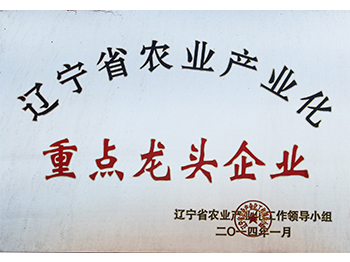 辽宁省农业产业化
重点龙头企业
辽宁省农业产业化工作领导小组
二〇一四年一月